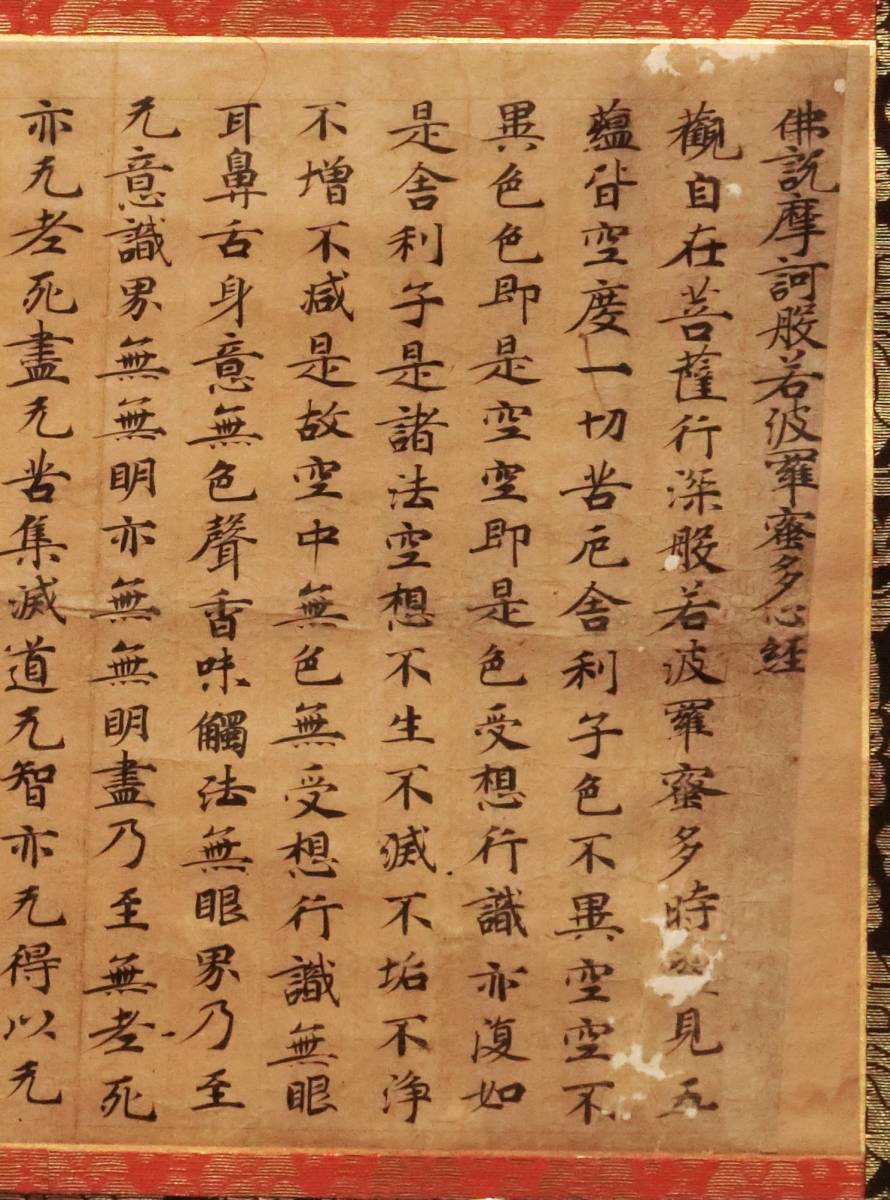 佛說摩訶般若波羅蜜多心経
觀自在菩薩行深般若波羅蜜多時見五
蘊皆空度一切苦厄舍利子色不異空空不
異色色即是空空即是色受想行識亦復如
是舍利子是諸法空想不生不滅不垢不淨
不增不減是故空中無色無受想行識無眼
耳鼻舌身意無色聲香味觸法無眼界乃至
无意識界無無明亦無無明盡乃至無老死
亦无老死盡无苦集滅道无智亦无得以无